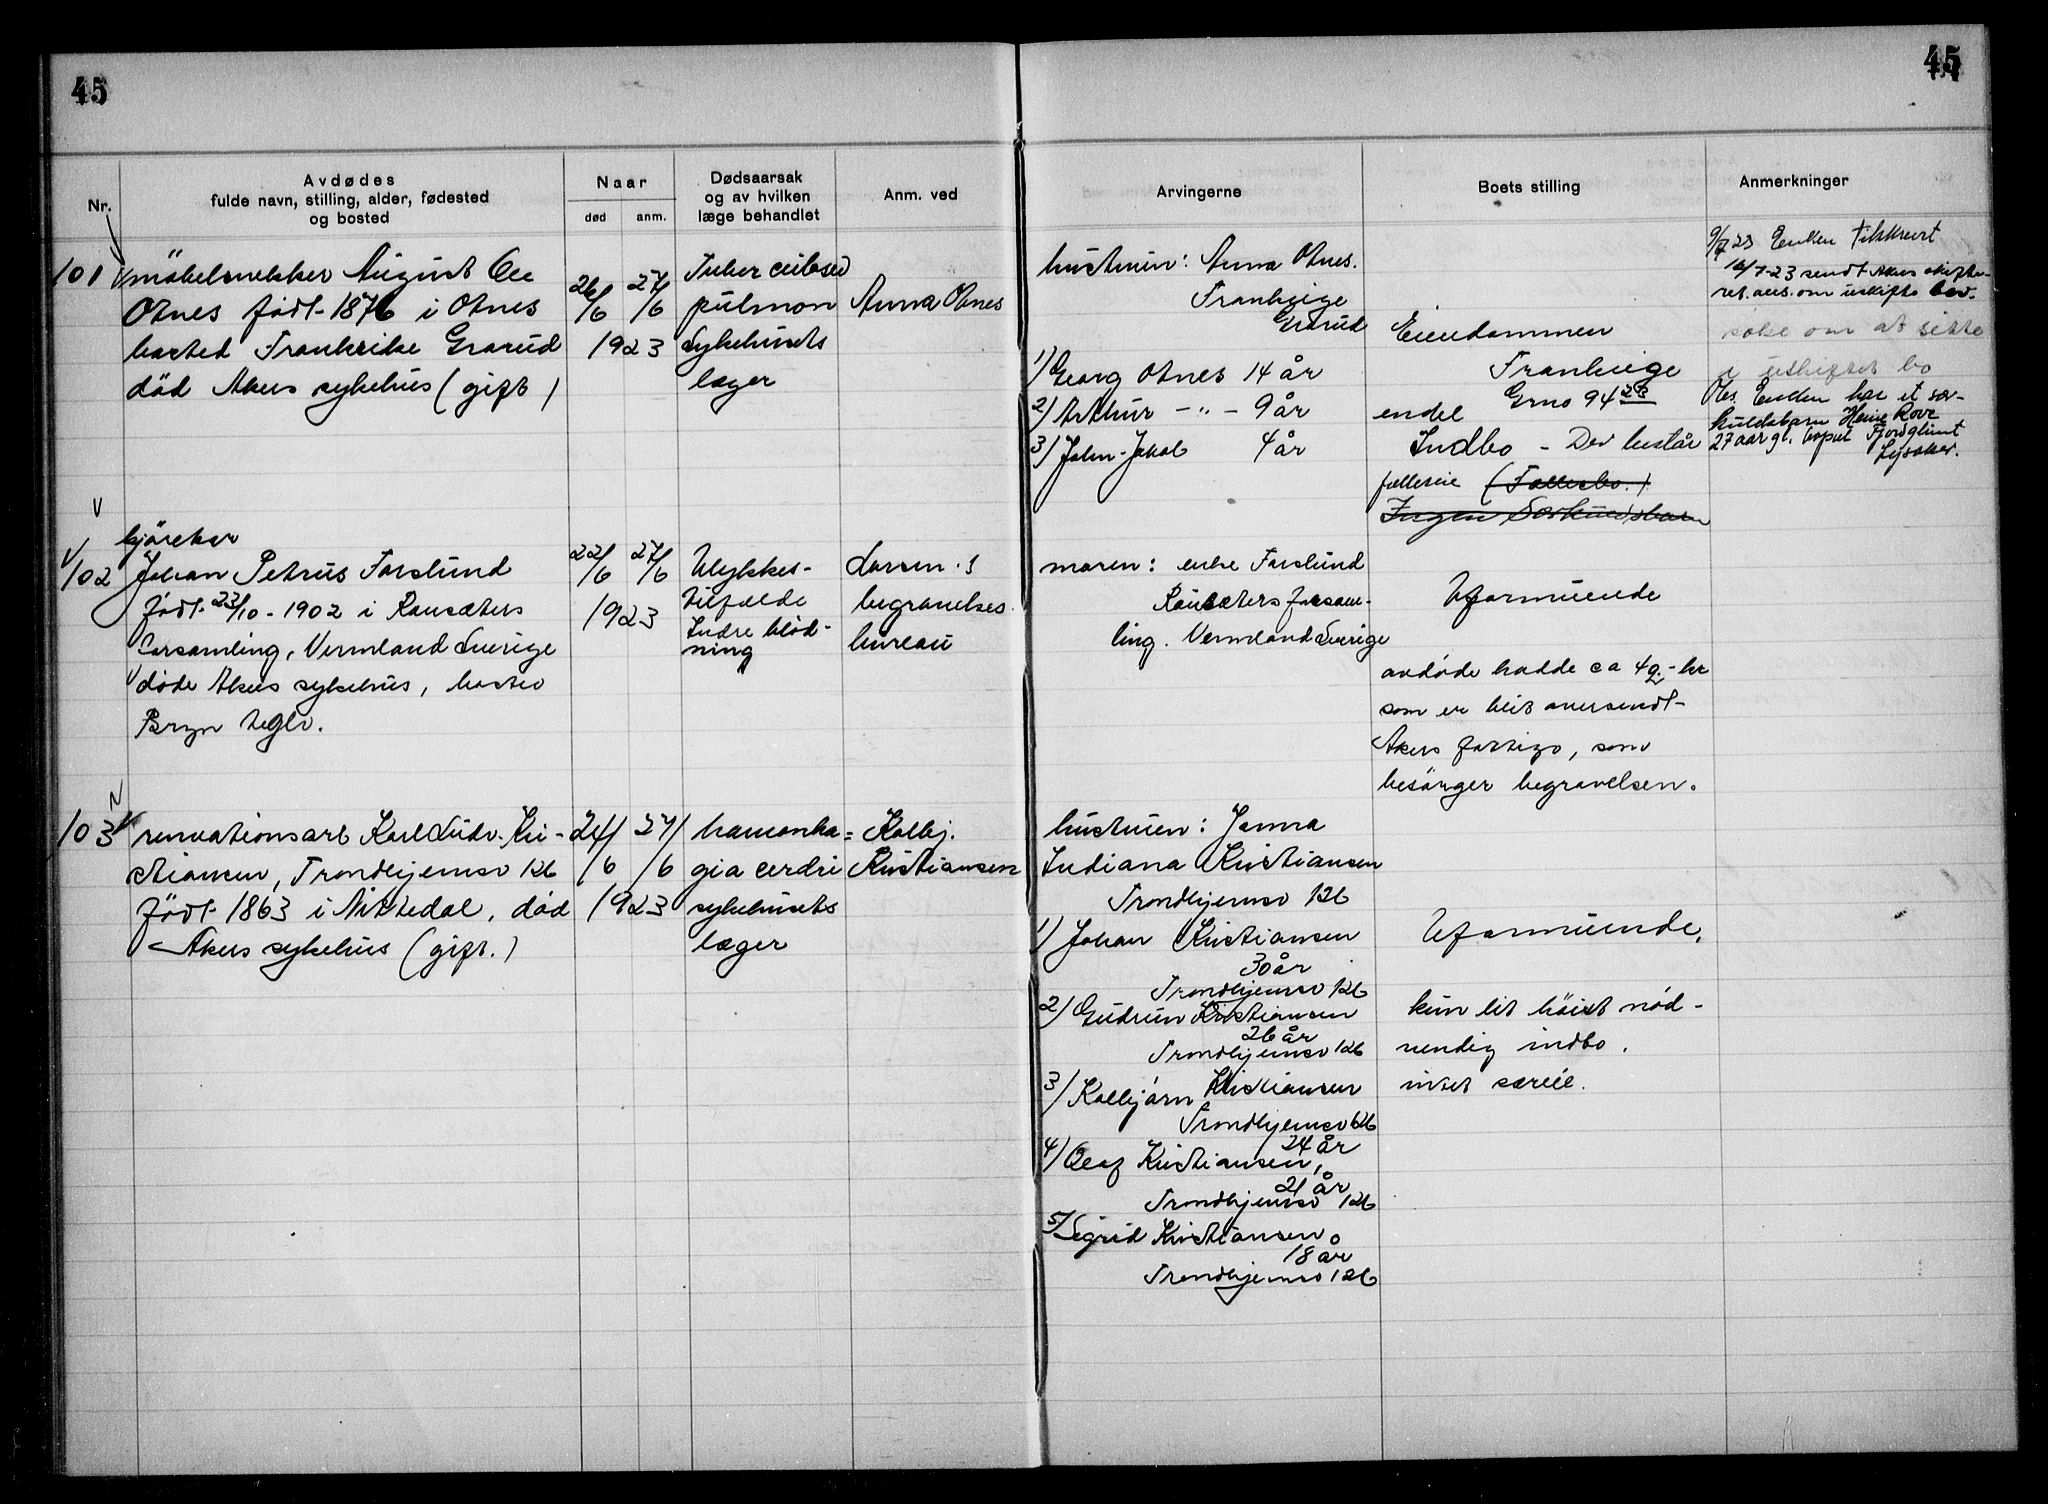 45
45
Nr.
Avdødes
fulde navn, stilling, alder, fødested
og bosted
Naar
død
anm.
Dødsaarsak
og av hvilken
læge behandlet
Anm. ved
Arvingerne
Boets stilling
Anmerkninger
101
møbelsnekker August
Otnes født 1876 i Otnes
bosted Frankrike Grorud
død Akers sykehus (gift)
26/6 27/6
1923
Tuberculosed
pulmon
Sykehusets
læger
Anna Otnes
hustruen: Anna Otnes.
Frankrige
Grorud
1) Georg Otnes 14 år
2) Arthur - " - 9 år
3) John-Jakob 4 år
Eiendommen
Frankrige
Grno 94
endel
Indbo - Der består
fælleseie (Fællesbo.)
Ingen Særkuldsbarn
9/7 23 Enken tilskrevt
16/7-23 sendt Akers skifte-
ret. ans. om uskifte bev.
søke om at sitte
i uskiftet bo
Obs. Enken har et sær-
kuldsbarn Rove
27 aar gl. bopæl Fjordglimt
Lysaker.
102
kjørekar
Johan Petrus Forslund
født 23/10-1902 i Ransæters
Forsamling, Vermland Sverige
døde Akers sykehus, bosted
Bryn teglv.
22/6 27/6
1923
Ulykkes-
tilfælde
Indre blød-
ning
Larsen s
begravelses
bureau
moren: enke Forslund
Ransæters forsam-
ling. Vermland Sverige
Uformuende
avdøde hadde ca 40.- kr
som er blit oversendt
Akers fattigv, som
besørger begravelsen.
103
renovationsarb Karl Ludv. Kri-
stiansen, Trondhjemsv 126
født 1863 i Nittedal, død
Akers sykehus (gift.)
24/6 27/6
1923
hæmorrha=
gia cerebri
sykehusets
læger
Kolbj.
Kristiansen
hustruen: Janna
Indiana Kristiansen
Trondhjemsv 126
1) Johan Kristiansen
30 år
Trondhjemsv 126
2) Gudrun Kristiansen
26 år
Trondhjemsv 126
3) Kolbjørn Kristiansen
Trondhjemsv 126
24 år
4) Olaf Kristiansen,
21 år
Trondhjemsv 126
5) Sigrid Kristiansen
18 år
Trondhjemsv 126
Uformuende.
kun lit høist nød-
vendig indbo.
intet særeie.